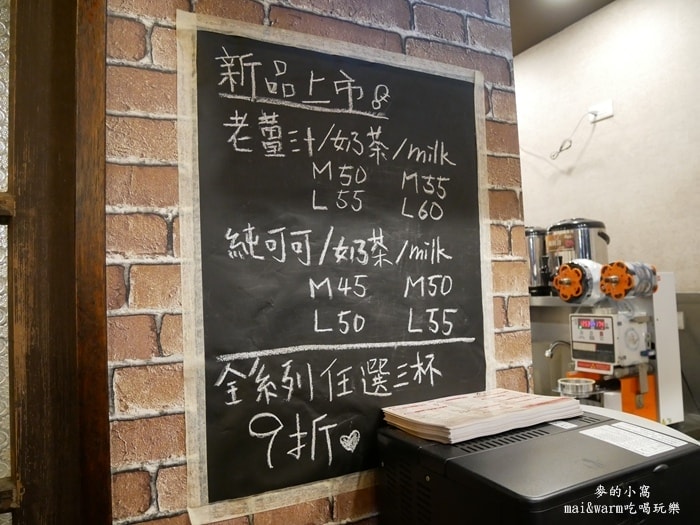 新品上市
老薑汁/奶茶/milk
M50 M55
L55 L60
純可可/奶茶/milk
M45 M50
L50 L55
全系列任選三杯
9折
麥的小窩
mai&warm吃喝玩樂